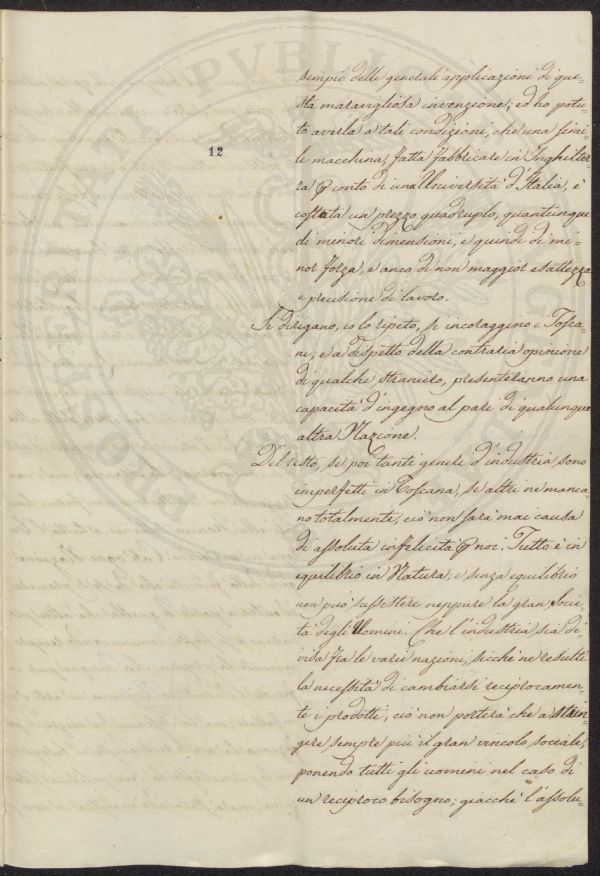 12
sempio delle generali applicazioni di que=
sta maravigliosa invenzione; ed ho potu=
to averla a tali condizioni, che una simi=
le macchina, fatta fabbricare in Inghilter=
ra p conto di una Università d'Italia, è
costata un prezzo quadruplo, quantunque
di minori dimensioni, e quindi di mi=
nor forza, e anco di non maggior esattezza
e precisione di lavoro.
Si dirigano, io lo ripeto, si incoraggino i Tosca=
ni; e a dispetto della contraria opinione
di qualche straniero, presenteranno una
capacità d'ingegno al pari di qualunque
altra Nazione.
Del resto, se poi tanti generi d'industria sono
imperfetti in Toscana, se altri ne manca=
no totalmente, ciò non sarà mai causa
di assoluta infelicità p noi. Tutto è in
equilibrio in Natura, e senza equilibrio
non può sussistere neppure la gran Socie=
tà degli Uomini. Che l'industria sia di
visa fra le varie nazioni, sicchè ne resulti
la necessità di cambiarsi reciprocamen=
te i prodotti, ciò non porterà che a strin=
gere sempre più il gran vincolo sociale,
ponendo tutti gli uomini nel caso di
un reciproco bisogno; giacchè l'assolu=